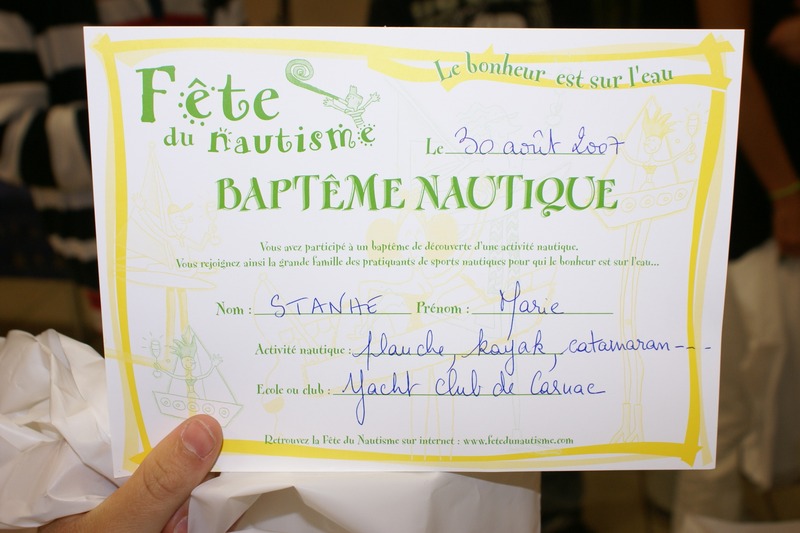 Fête
du nautisme
Le bonheur est sur l'eau
Le 30 août 2007
BAPTÊME NAUTIQUE
Vous avez participé à un baptême de découverte d'une activité nautique.
Vous rejoignez ainsi la grande famille des pratiquants de sports nautiques pour qui le bonheur est sur l'eau...
Nom : STANHE Prénom : Marie
Activité nautique : planche, kayak, catamaran---
Ecole ou club : Yacht club de Carnac
Retrouvez la Fête du Nautisme sur internet : www.fetedunautisme.com